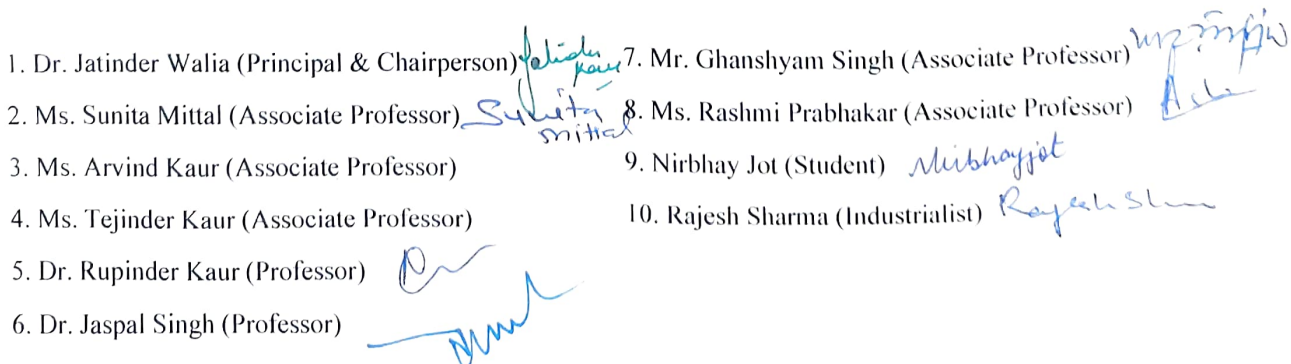 1. Dr. Jatinder Walia (Principal & Chairperson)
2. Ms. Sunita Mittal (Associate Professor) Sunita Mittal
3. Ms. Arvind Kaur (Associate Professor)
4. Ms. Tejinder Kaur (Associate Professor)
5. Dr. Rupinder Kaur (Professor)
6. Dr. Jaspal Singh (Professor)
7. Mr. Ghanshyam Singh (Associate Professor)
8. Ms. Rashmi Prabhakar (Associate Professor)
9. Nirbhay Jot (Student) Nirbhayjot
10. Rajesh Sharma (Industrialist)